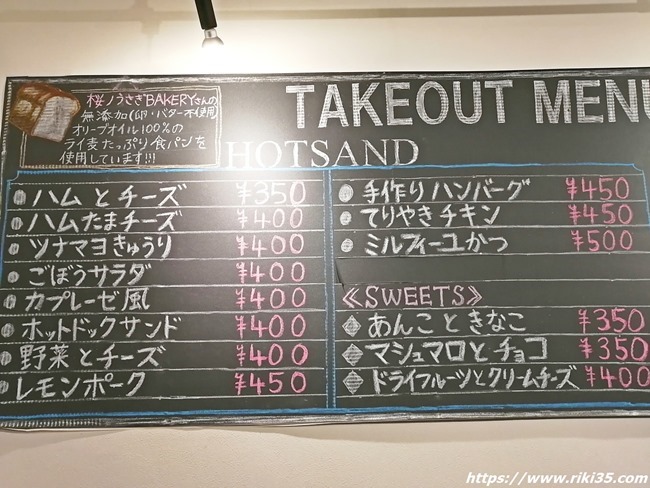 桜ノうさぎBAKERYさんの
無添加(卵・バター不使用
オリーブオイル100%の
ライ麦たっぷり食パンを
使用しています!!!
TAKEOUT MENU
HOTSAND
ハムとチーズ ¥350
ハムたまチーズ ¥400
ツナマヨきゅうり ¥400
ごぼうサラダ ¥400
カプレーゼ風 ¥400
ホットドックサンド ¥400
野菜とチーズ ¥400
レモンポーク ¥450
手作りハンバーグ ¥450
てりやきチキン ¥450
ミルフィーユかつ ¥500
《SWEETS》
あんこときなこ ¥350
マシュマロとチョコ ¥350
ドライフルーツとクリームチーズ ¥400
https://www.riki35.com